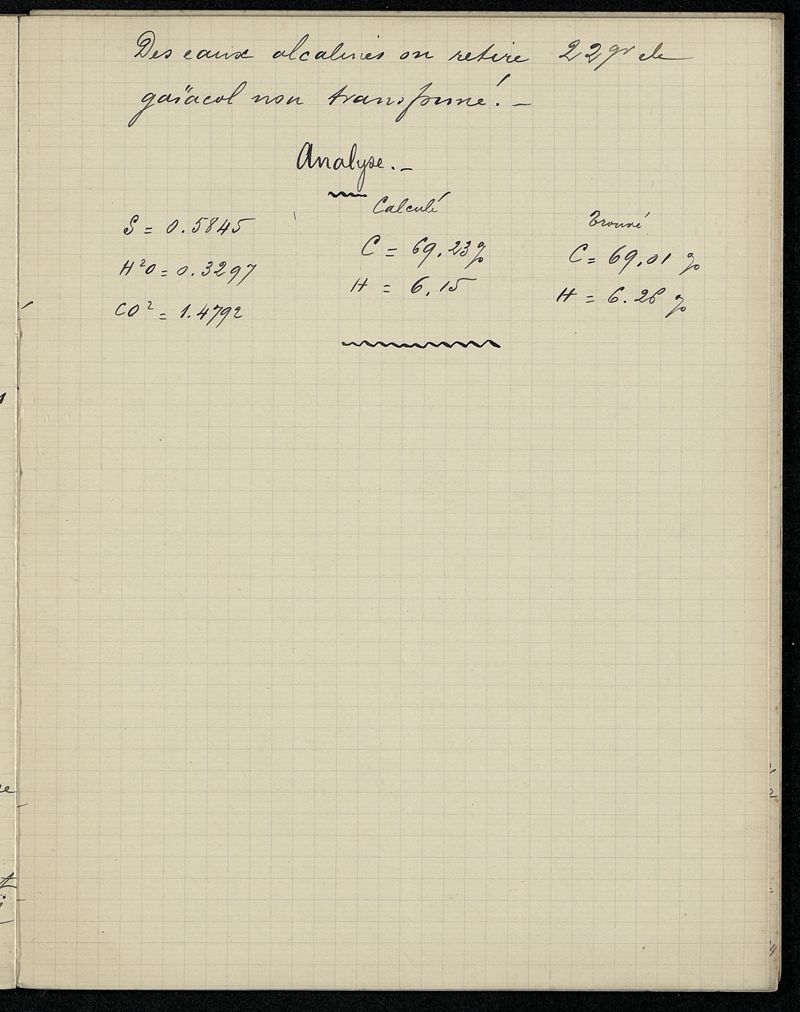 Des eaux alcalines on retire 22gr de
gaïacol non transformé. –
Analyse. –
Calculé
Trouvé
S = 0.5845
C = 69.23 %
C = 69.01 %
H²O = 0.3297
H = 6.15
H = 6.26 %
CO² = 1.4792